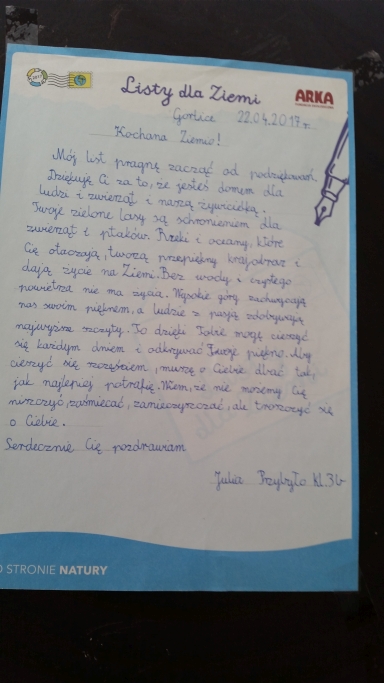 Listy dla Ziemi
ARKA
Gorlice 22.04.2017r.
Kochana Ziemio!
Mój list pragnę zacząć od podziękowań.
Dziękuję Ci za to, że jesteś domem dla
ludzi i zwierząt i naszą żywicielką.
Twoje zielone lasy są schronieniem dla
zwierząt i ptaków. Rzeki i oceany, które
Cię otaczają, tworzą przepiękny krajobraz i
dają życie na Ziemi. Bez wody i czystego
powietrza nie ma życia. Wysokie góry zachwycają
nas swoim pięknem, a ludzie z pasją zdobywają
najwyższe szczyty. To dzięki Tobie mogę cieszyć
się każdym dniem i odkrywać Twoje piękno. Aby
cieszyć się szczęściem, muszę o Ciebie dbać tak,
jak najlepiej potrafię. Wiem, że nie możemy Cię
niszczyć, zaśmiecać, zanieczyszczać, ale troszczyć się
o Ciebie.
Serdecznie Cię pozdrawiam
Julia Przybyło kl.3b
O STRONIE NATURY